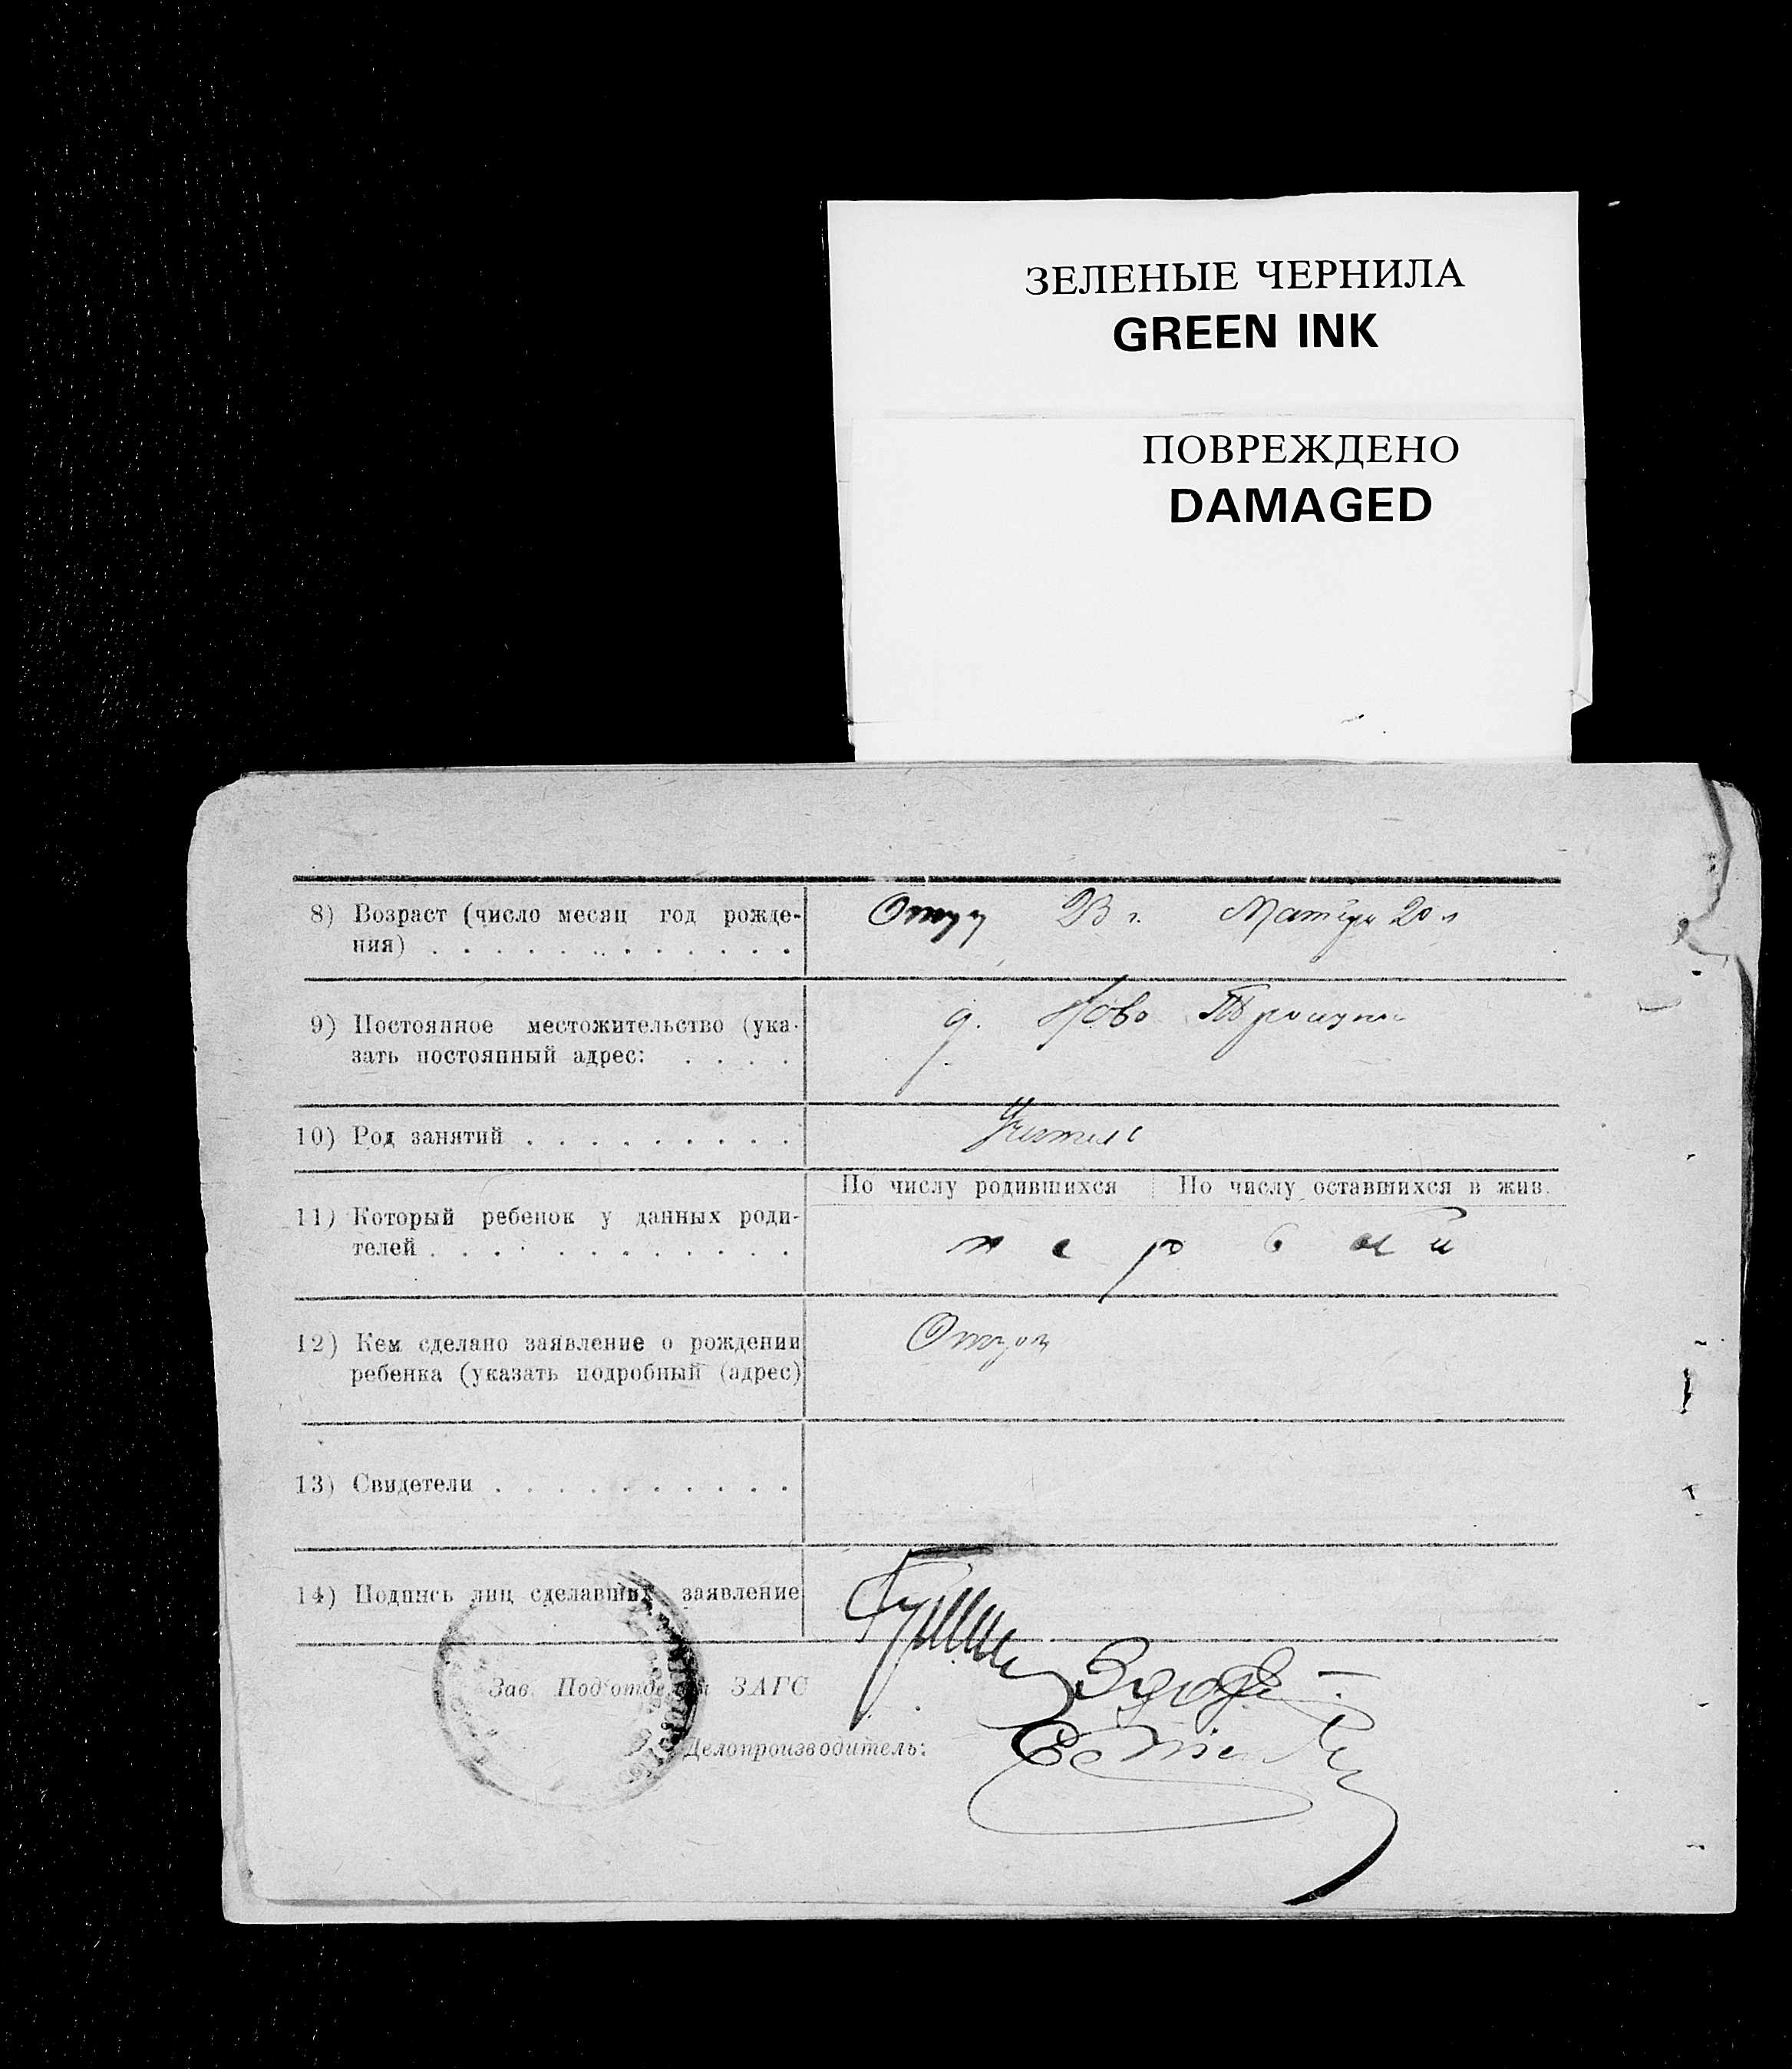 ЗЕЛЕНЫЕ ЧЕРНИЛА
GREEN INK
ПОВРЕЖДЕНО
DAMAGED
8) Возраст (число месяц год рожде-
ния) . . . . . . . . . . . .
Отцу 23 г. Матери 20 л
9) Постоянное местожительство (ука-
зать постоянный адрес: . . . .
д. Ново Троицк
10) Род занятий . . . . . . . . .
Учитель
По числу родившихся По числу оставшихся в жив.
11) Который ребенок у данных роди-
телей . . . . . . . . . . . .
первый
12) Кем сделано заявление о рождении
ребенка (указать подробный (адрес)
Отцом
13) Свидетели . . . . . . . . . .
14) Подпись лиц сделавших заявление
Зав. Подотделом ЗАГС
Делопроизводитель: